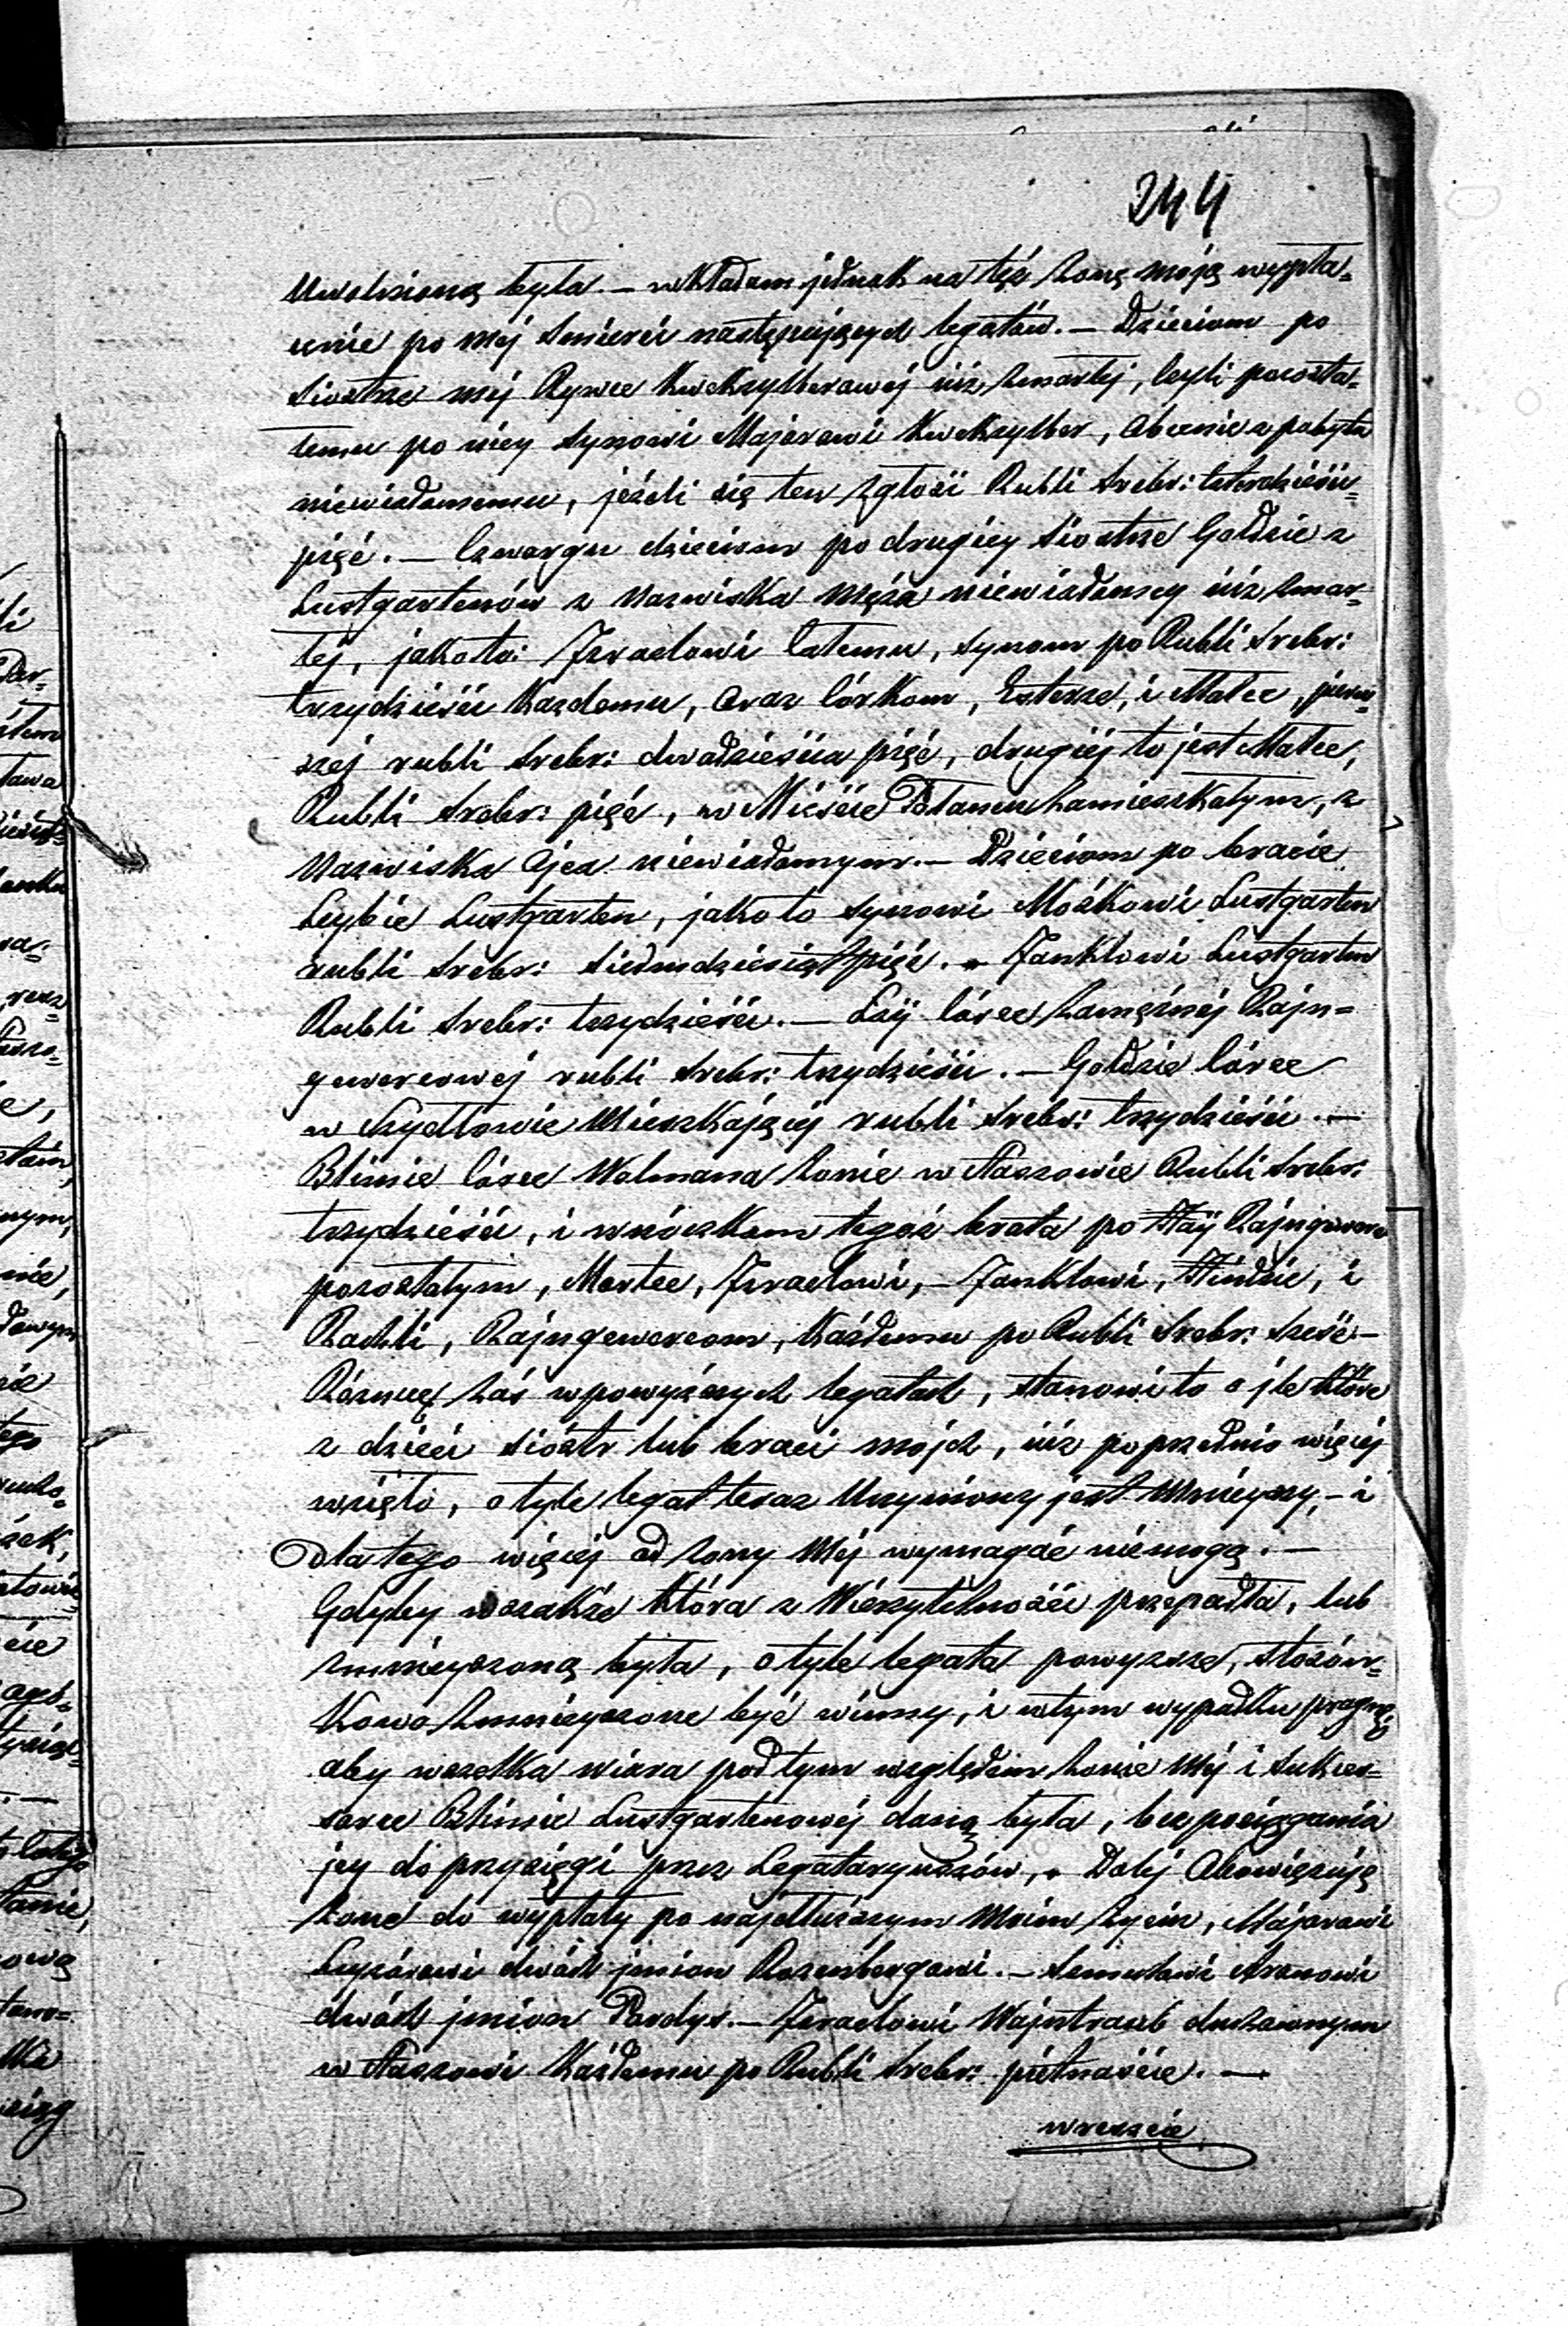 244
Uwolnioną była. — wkładam jednak na tęż żonę moję wypła=
cenie po mej śmierci następujących legatów. — Dzieciom po
siostrze mej Rywce Kwekzylberowej iuż zmarłej, czyli pozosta=
łemu po niey synowi Majerowi Kwekzylber, obecnie z pobytu
niewiadomemu, jeżeli się ten zgłosi Rubli Srebr: czterdzieści=
pięć. — Czworgu dzieciom po drugiey siostrze Gołdzie z
Lustgartenów z nazwiska męża niewiadomey iuż zmar=
łej, jakoto: Izraelowi Synom po Rubli Srebr:
trzydzieści każdemu, oraz córkom, Esterze, i Małce, pierw=
szej rubli Srebr: dwadzieścia pięć, drugiéj to jest Małce,
Rubli Srebr: pięć, w Mieście zamieszkałym, z
nazwiska Ojca niewiadomym. — Dzieciom po bracie
Leybie Lustgarten, jako to synowi Moźkowi Lustgarten
rubli Srebr: siedmdziesiąt pięć. — Janklowi Lustgarten
Rubli Srebr: trzydzieści. — Łaji córce zamężnéj Rajn=
gewercowej rubli Srebr: trzydzieści. — Gołdzie córce
w Szydłowie mieszkającej rubli Srebr: trzydzieści. —
Blimie córce Wolmana żonie w Staszowie Rubli Srebr:
trzydzieści, i wnóczkom tegoż brata po Rajngewerc
pozostałym, Izraelowi, — Janklowi, Hindzie, i
Rachli, Rajngewercom, każdemu po Rubli Srebr: sześć —
Różnicę zaś w powyższych legatach, stanowi to o jle które
z dzieci sióstr lub braci mojch, iuż poprzednio więcéj
wzięło, o tyle legat teraz uczyniony jest mnieyszy, — i
dla tego więcéj od żony Mej wymagać niemogą. —
Gdyby wszakże która z Wierzytelności przepadła, lub
zmnieyszoną była, o tyle legata powyższe, stosów=
kowo zmnieyszone być winny, i w tym wypadku pragnę,
aby wszelka wiara pod tym względem żonie Mej i Sukces=
sorce Blimie Lustgartenowéj daną była, bez pociągania
jey do przysięgi przez Legataryuszów, — Daléj Obowiązuję
żonę do wypłaty po najdłuższym Moim życiu, Májerowi
Leyzórowi dwóch jmion Rozenbergowi. — Semulowi Aronowi
dwóch jmion Pardys. — Izraelowi Wájntraub duchownym
w Staszowi każdemu po Rubli Srebr: piętnaście. —
wreszcie